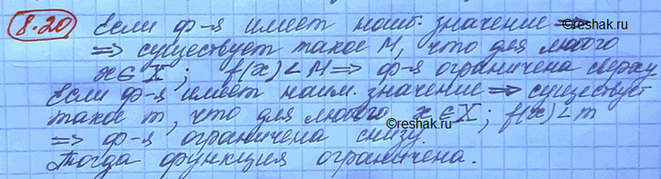 8.20 Если ф-я имеет наиб. значение ⇒
⇒ существует такое M, что для любого
x∈X; f(x)<M ⇒ ф-я ограничена сверху
Если ф-я имеет наим. значение ⇒ существует
такое m, что для любого x∈X; f(x)<m
⇒ ф-я ограничена снизу.
Тогда функция ограничена.
©reshak.ru
©reshak.ru